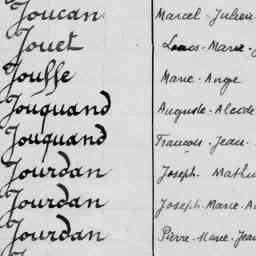 Joucan Marcel-Julien
Jouet Louis-Marie-J
Jouffe Marie-Ange
Jouquand Auguste-Alcide
Jouquand François-Jean-
Jourdan Joseph-Mathu
Jourdan Joseph-Marie-A
Jourdan Pierre-Marie-Jean